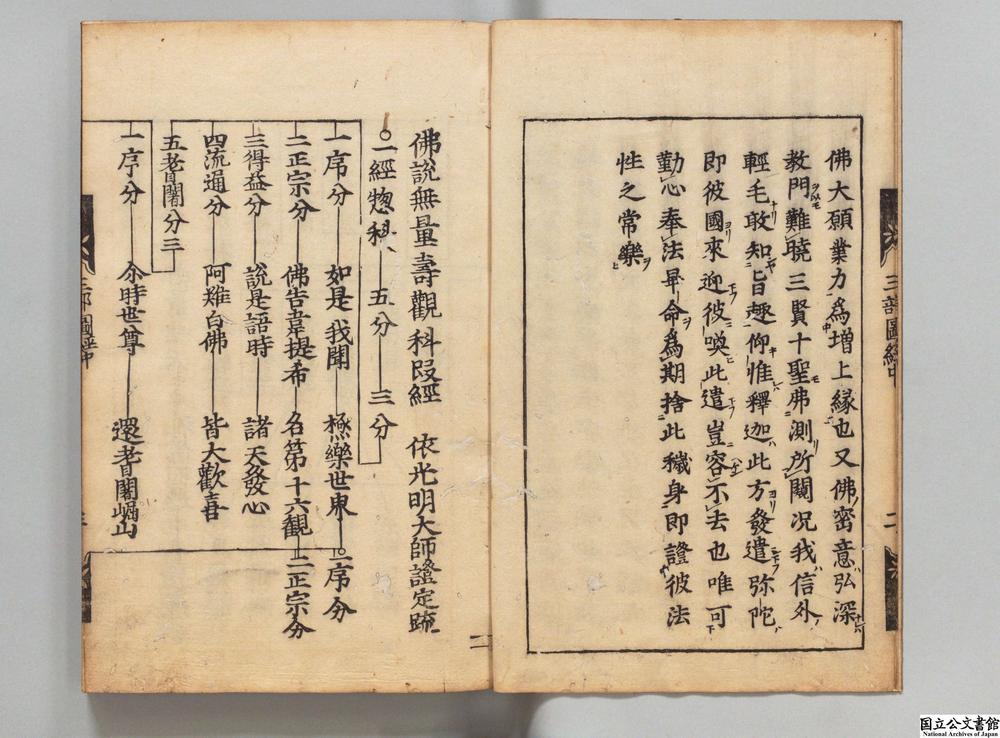 佛大願業力為増上縁也又佛密意弘深
教門難曉三賢十聖弗測所闚況我信外
輕毛敢知旨趣仰惟釋迦此方發遣弥陀
即彼國來迎彼喚此遣豈容不去也唯可
勤心奉法畢命為期捨此穢身即證彼法
性之常樂
佛說無量壽觀科段經 依光明大師證定疏
一經惣科 五分 三分
一序分 如是我聞 極樂世界 一序分
二正宗分 佛告韋提希 名第十六觀 二正宗分
三得益分 說是語時 諸天發心
四流通分 阿難白佛 皆大歡喜
五耆闍分三
一序分 尒時世尊 還耆闍崛山
国立公文書館
National Archives of Japan